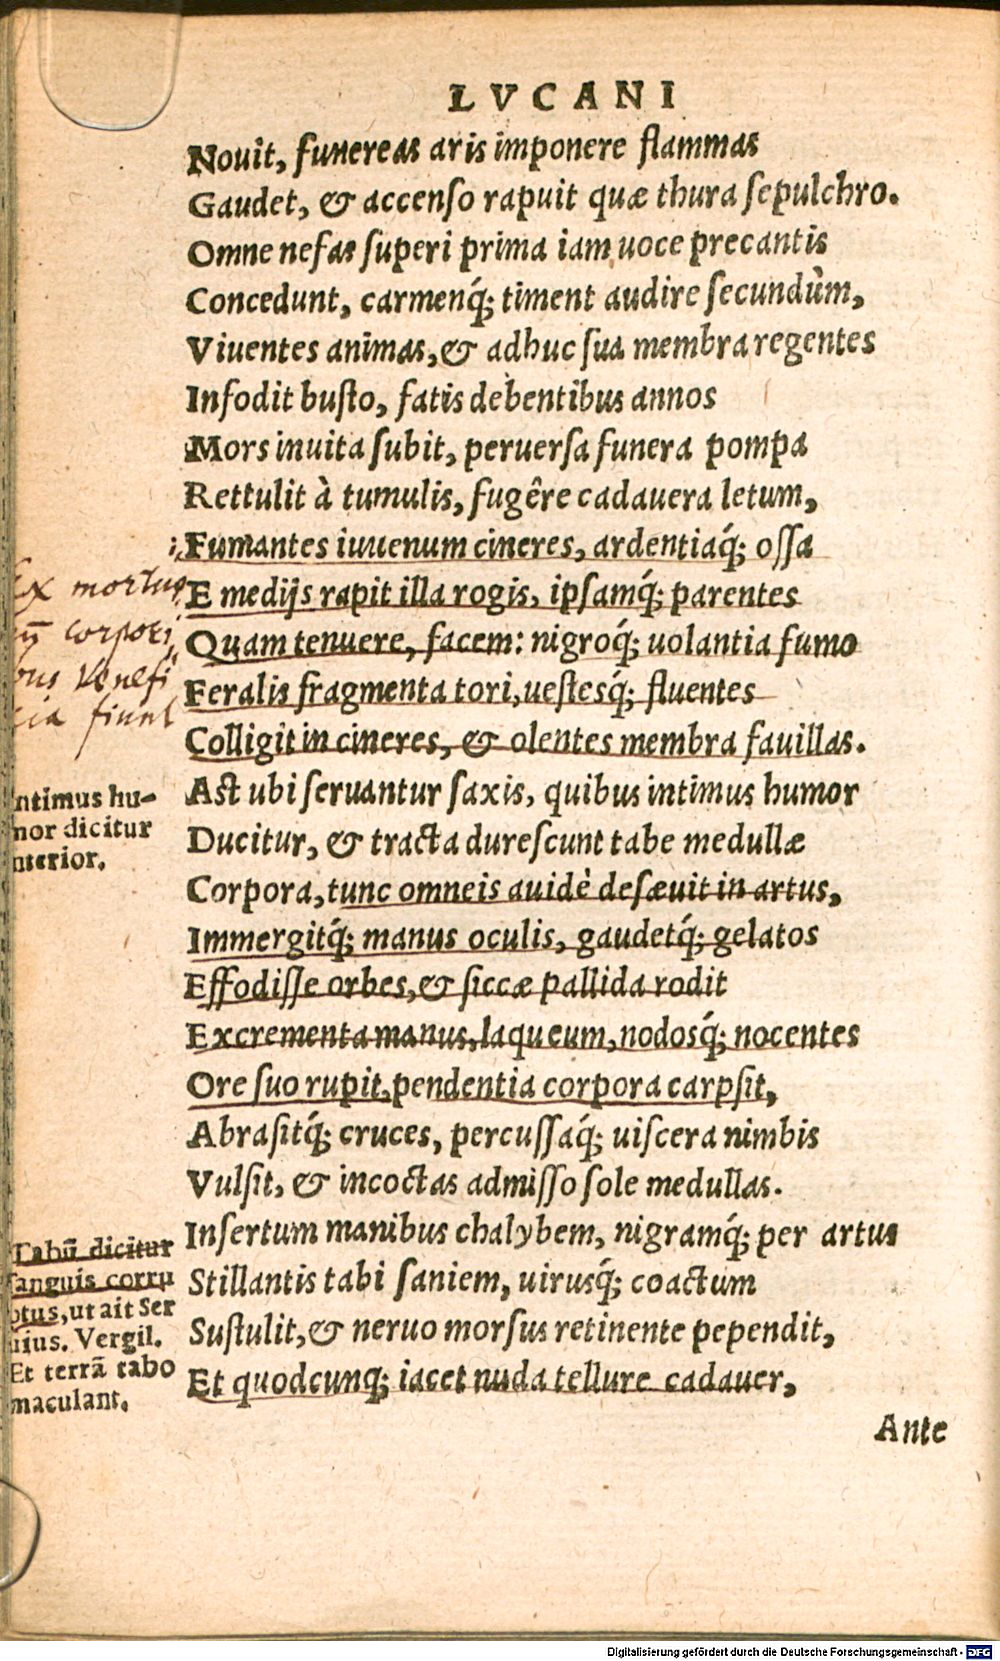 LVCANI
Nouit, funereas aris imponere flammas
Gaudet, & accenso rapuit quæ thura sepulchro.
Omne nefas superi prima iam uoce precantis
Concedunt, carmenq́; timent audire secundùm,
Viuentes animas, & adhuc sua membra regentes
Infodit busto, fatis debentibus annos
Mors inuita subit, peruersa funera pompa
Rettulit à tumulis, fugêre cadauera letum,
Fumantes iuuenum cineres, ardentiaq́; ossa
E medijs rapit illa rogis, ipsamq́; parentes
Quam tenuere, facem: nigroq́; uolantia fumo
Feralis fragmenta tori, uestesq́; fluentes
Colligit in cineres, & olentes membra fauillas.
Ast ubi seruantur saxis, quibus intimus humor
Ducitur, & tracta durescunt tabe medullæ
Corpora, tunc omneis auidè desæuit in artus,
Immergitq́; manus oculis, gaudetq́; gelatos
Effodisse orbes, & siccæ pallida rodit
Excrementa manus, laqueum, nodosq́; nocentes
Ore suo rupit, pendentia corpora carpsit,
Abrasitq́; cruces, percussaq́; uiscera nimbis
Vulsit, & incoctas admisso sole medullas.
Insertum manibus chalybem, nigramq́; per artus
Stillantis tabi saniem, uirusq́; coactum
Sustulit, & neruo morsus retinente pependit,
Et quodcunq; iacet nuda tellure cadauer,
Ante
Ex mortuo
corpori
bus Venefi
cia fiunt
ntimus hu-
mor dicitur
nterior.
Tabū dicitur
sanguis corru
ptus, ut ait Ser
uius. Vergil.
Et terrā tabo
maculant.
Digitalisierung gefördert durch die Deutsche Forschungsgemeinschaft - DFG